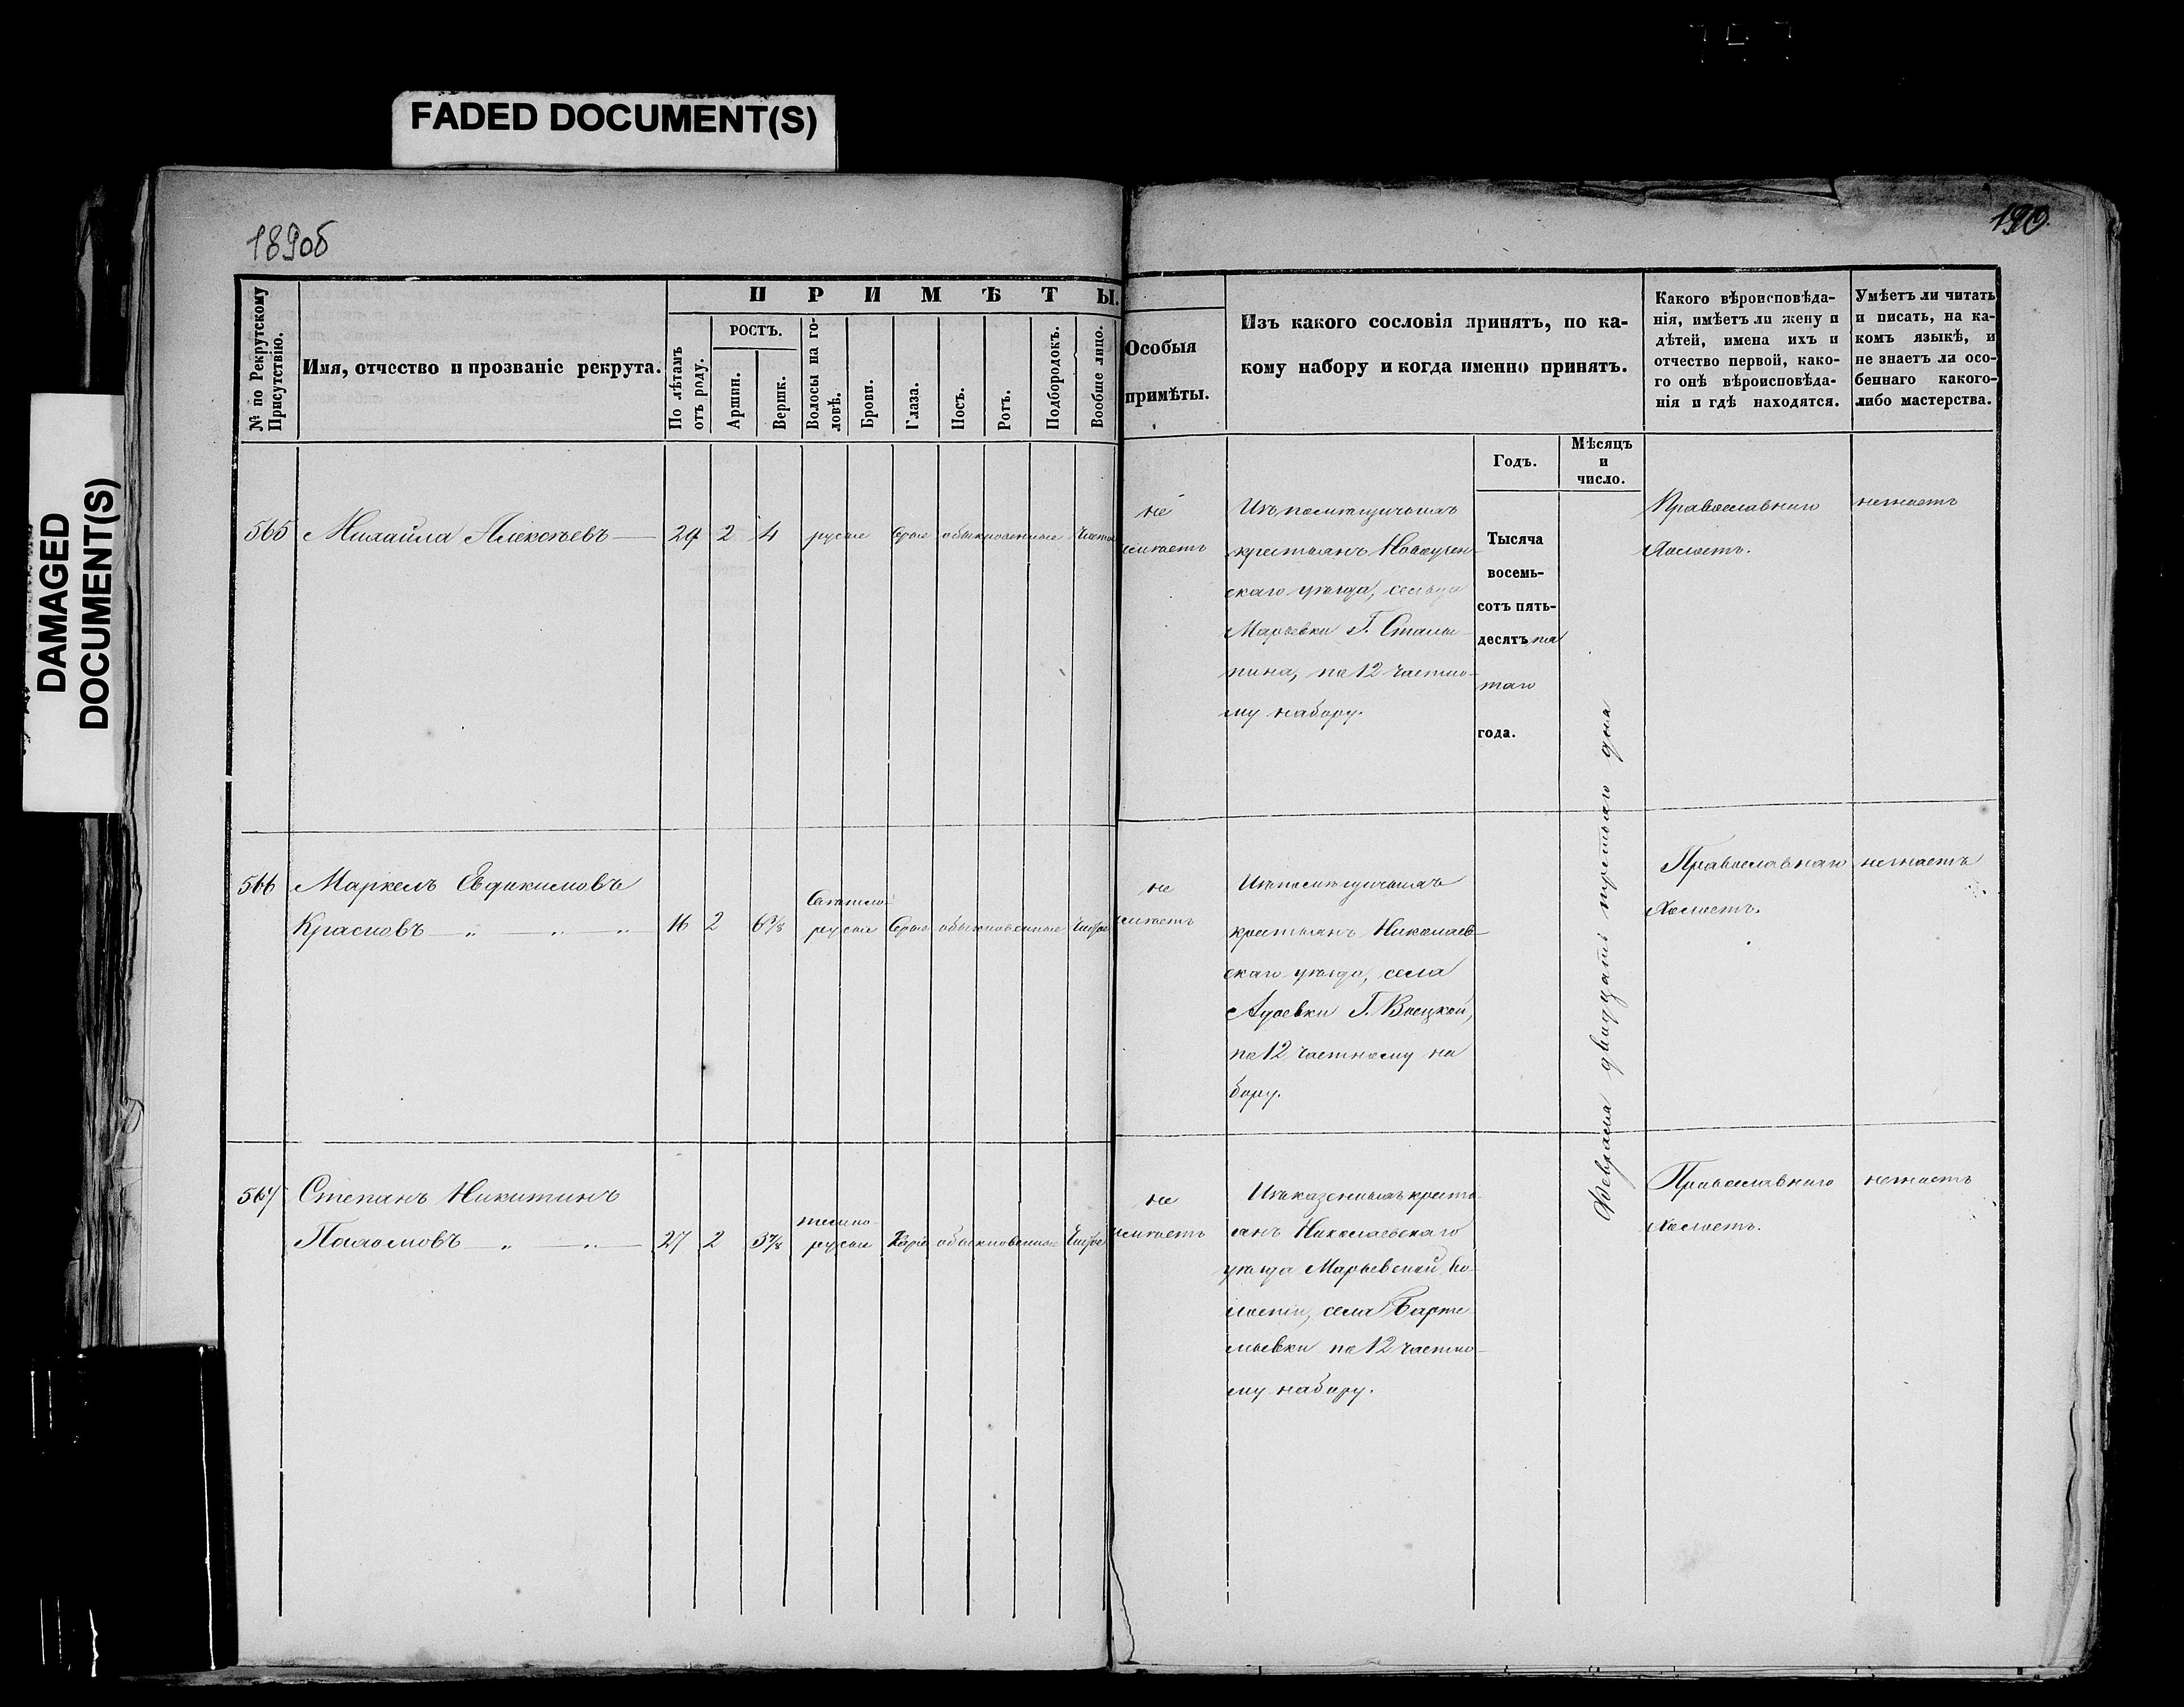 FADED DOCUMENT(S)
DAMAGED
DOCUMENT(S)
189об
190.
№ по Рекрутскому
Присутствію.
Имя, отчество и прозваніе рекрута.
ПРИМѢТЫ.
По лѣтамъ
отъ роду.
РОСТЪ.
Аршин.
Вершк.
Волосы на го-
ловѣ.
Брови.
Глаза.
Носъ.
Ротъ.
Подбородокъ.
Вообще лицо.
Особыя
примѣты.
Изъ какого сословія принятъ, по ка-
кому набору и когда именно принятъ.
Какого вѣроисповѣда-
нія, имѣетъ ли жену и
дѣтей, имена ихъ и
отчество первой, како-
го онѣ вѣроисповѣда-
нія и гдѣ находятся.
Умѣетъ ли читать
и писать, на ка-
комъ языкѣ, и
не знаетъ ли осо-
беннаго какого-
либо мастерства.
Годъ.
Мѣсяцъ
и
число.
565 Михайла Алексѣевъ 2 4 русые серые обыкновенные
не
имѣетъ
Изъ помѣщичьихъ
крестьянъ Новоузен-
скаго уѣзда, сельца
Марьевки Г. Столы-
пина, по 12 частно-
му набору.
Тысяча
восемь-
сотъ пять-
десятъ пя
таго
года.
Февраля двадцать третьяго дня
Православнаго
Холостъ.
незнаетъ
566 Маркелъ Евдокимовъ
Красновъ 2 русые серые обыкновенные чистое
не
имѣетъ
Изъ помѣщичьихъ
крестьянъ Николаев-
скаго уѣзда, села
по 12 частному на
бору.
Православнаго
Холостъ.
незнаетъ
567 Степанъ Никитинъ
27 2 3 7/8 темно-
русые Каріе обыкновенные чистое
не
имѣетъ
Изъ казенныхъ кресть-
янъ Николаевскаго
уѣзда Марьевской во-
лости, села
по 12 частно-
му набору.
Православнаго
Холостъ.
незнаетъ